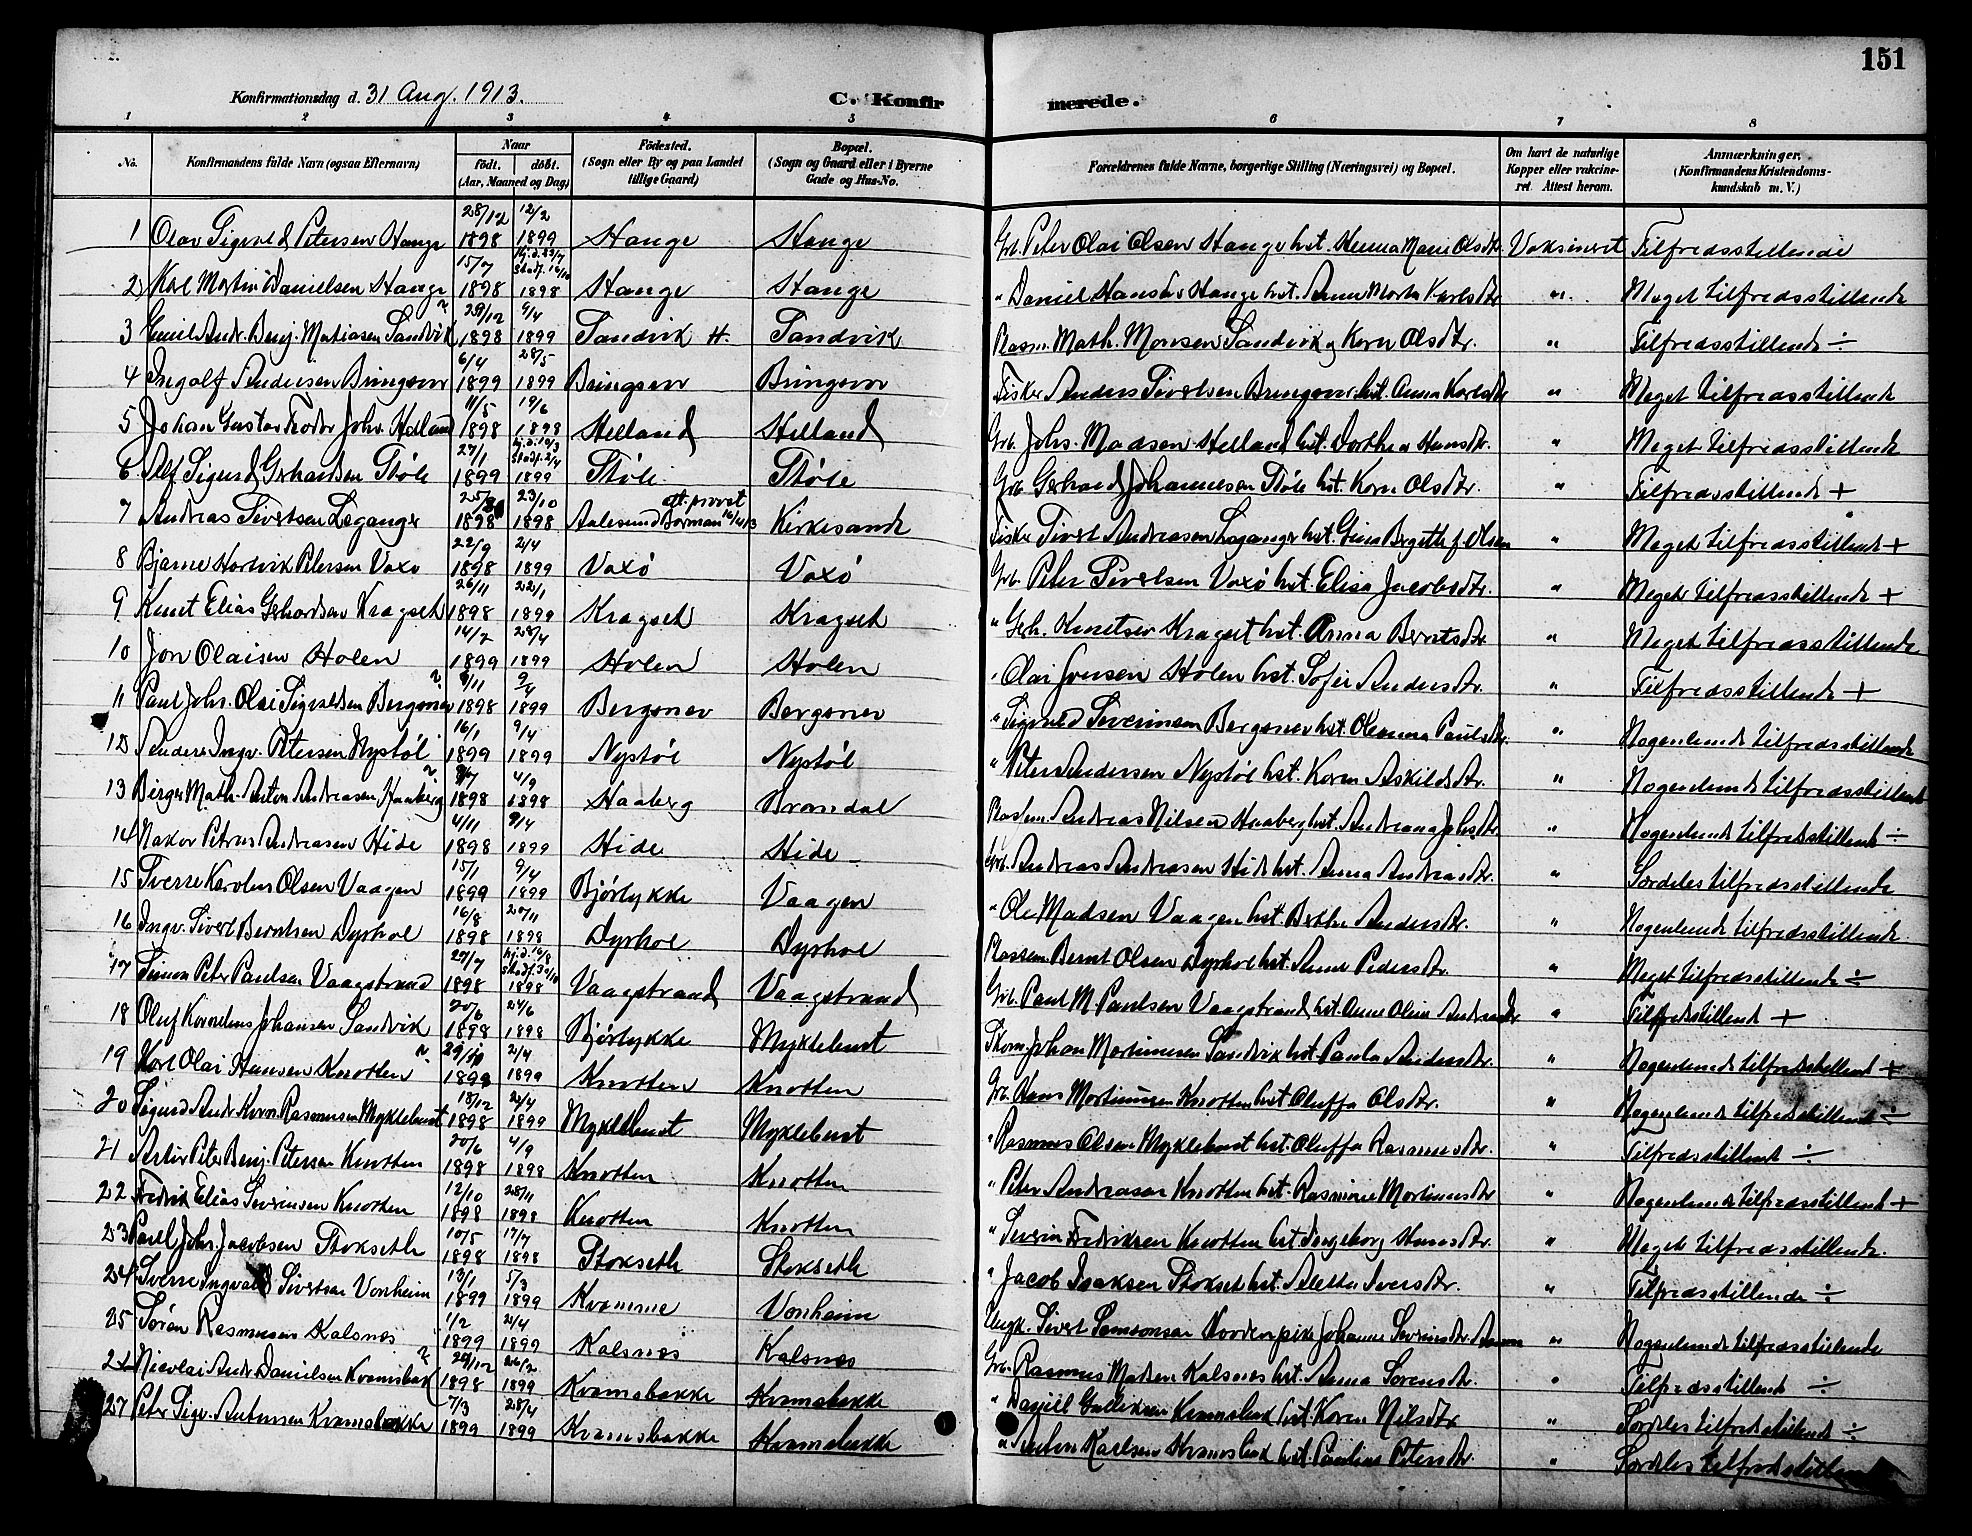 151
Konfirmationsdag d. 31 Aug. 1913. C. Konfirmerede.
1 2 3 4 5 6 7 8
No. Konfirmandens fulde Navn (ogsaa Efternavn) Naar født. døbt. (Aar, Maaned og Dag) Fødested. (Sogn eller By og paa Landet tillige Gaard) Bopæl. (Sogn og Gaard eller i Byerne Gade og Hus-No. Forældrenes fulde Navne, borgerlige Stilling (Næringsvei) og Bopæl. Om havt de naturlige Kopper eller vakcineret. Attest herom. Anmærkninger. (Konfirmandens Kristendomskundskab m. V.)
1 Olav Sigvald Petersen Hauge 28/12 1898 12/2 1899 Hauge Hauge Grb. Peter Olai Olsen Hauge hst. Hanna Marie Olsdtr. Vaksineret Tilfredsstillende
2 Karl Martin Danielsen Hauge 15/7 1898 hj.d. 23/7 Stadf. 16/10 1898 Hauge Hauge " Daniel Hansen Hauge hst. Anne Marta Karlsdtr " Meget tilfredsstillende
3 Emil Andr. Benj. Matiasen Sandvik 29/12 1898 9/4 1899 Sandvik H. Sandvik Rasm. Math. Monsen Sandvik og Karn Olsdtr. " Tilfredsstillende ÷
4 Ingolf Andersen Bringsvor 6/4 1899 28/5 1899 Bringsvor Bringsvor Fisker Anders Sivertsen Bringsvor hst. Anna Karlsdtr " Meget tilfredsstillende
5 Johan Gustav Teodor Johs. Helland 11/5 1898 19/6 1898 Helland Helland Grb. Johs. Madsen Helland hst. Dorthea Hansdtr. " Meget tilfredsstillende
6 Alf Sigurd Gerhardsen Støle 27/1 1899 hj.d. 10/3 Stadf. 2/4 1899 Støle Støle Grb. Gerhard Johannesen Støle hst. Karn Olsdtr. " Tilfredsstillende +
7 Andreas Sivertsen Leganger 25/8 1898 23/10 1898 Aalesund att. provst Borman 16/4 13 Kirkesande Fisker Sivert Andreasen Leganger hst. Gina Bergitte f. Olsen " Meget tilfredsstillende +
8 Bjarne Hartvik Petersen Voxø 22/9 1898 2/4 1899 Voxø Voxø Grb. Peter Sivertsen Voxø hst. Elisa Jacobsdtr. " Meget tilfredsstillende +
9 Knut Elias Gerhardsen Kragset 26/11 1898 22/1 1899 Kragset Kragset " Gerh. Knutsen Kragset hst. Anna Berntsdtr " Meget tilfredsstillende
10 Jon Olaisen Holen 14/2 1899 28/4 1899 Holen Holen " Olai Jonsen Holen hst. Sofie Andersdtr. " Tilfredsstillende +
11 Paul Johs. Olai Sigvaldsen Bergsnev 8/11 1898 9/4 1899 Bergsnev Bergsnev " Sigvald Severinsen Bergsnev hst. Oleanna Paulsdtr. " Nogenlunde tilfredsstillende
12 Anders Ingv. Petersen Nystøl 16/1 1899 9/4 1899 Nystøl Nystøl " Peter Andersen Nystøl hst. Karn Askildsdtr. " Nogenlunde tilfredsstillende
13 Birger Math. Anton Andreasen Haaberg 1898 4/9 1898 Haaberg Bransdal Andreas Nilsen Haaberg hst. Andreana Johsdtr " Nogenlunde tilfredsstillende ÷
14 Nakor Petrus Andreasen Hide 4/11 1898 9/4 1899 Hide Hide Grb. Andreas Andreasen Hide hst. Anna Andreasdtr. " Særdeles tilfredsstillende
15 Sverre Karolus Olsen Vaagen 15/1 1899 9/4 1899 Bjørlykke Vaagen " Ole Madsen Vaagen hst. Berthe Andersdtr. " Nogenlunde tilfredsstillende
16 Ingv. Sivert Berntsen Dyrhol 16/8 1898 20/11 1898 Dyrhol Dyrhol Bernt Olsen Dyrhol hst. Anne Pedersdtr. " Meget tilfredsstillende ÷
17 Simon Peter Paulsen Vaagstrand 27/7 1898 hj.d. 10/8 Stadf. 30/10 1898 Vaagstrand Vaagstrand Grb. Paul M. Paulsen Vaagstrand hst. Anne Olina Andreasdtr " Tilfredsstillende +
18 Oluf Kornelius Johansen Sandvik 20/6 1898 24/6 1898 Bjørlykke Myklebust Johan Martinusen Sandvik hst. Paula Andersdtr. " Nogenlunde tilfredsstillende +
19 Karl Olai Hansen Knotten 1898 2/4 1899 Knotten Knotten Grb. Hans Martinusen Knotten hst. Oluffa Olsdtr. " Nogenlunde tilfredsstillende ÷
20 Sigurd Andr. Korn. Rasmusen Myklebust 18/12 1898 24/4 1899 Myklebust Myklebust " Rasmus Olsen Myklebust hst. Oluffa Rasmusdtr. " Tilfredsstillende ÷
21 Artur Peter Benj. Petersen Knotten 20/6 1898 4/9 1898 Knotten Knotten " Peter Andreasen Knotten hst. Rasmine Martinusdtr " Nogenlunde tilfredsstillende +
22 Fredrik Elias Severinsen Knotten 12/10 1898 28/11 1898 Knotten Knotten " Severin Fredriksen Knotten hst. Ingeborg Hansdtr. " Meget tilfredsstillende.
23 Paul Johs. Jacobsen Stokseth 10/5 1898 17/7 1898 Stokseth Stokseth " Jacob Isaksen Stokset hst. Aletta Iversdtr. " Tilfredsstillende ÷
24 Sverre Ingvald Sivertsen Vonheim 13/1 1899 5/3 1899 Kvamme Vonheim Ungk. Sivert Samsonsen Pike Johanne Severinsdtr. " Nogenlunde tilfredsstillende
25 Søren Rasmusen Kalsnes 1/2 1899 24/4 1899 Kalsnes Kalsnes Grb. Rasmus Madsen Kalsnes hst. Anna Sørensdtr. " Tilfredsstillende ÷
26 Nicolai Andr. Danielsen Kvamsbak 1898 26/2 1899 Kvamsbakke Kvamsbakke " Daniel Gulliksen Kvamsbak hst. Karen Nilsdtr " Særdeles tilfredsstillende ÷
27 Peter Sigv. Antonsen Kvamsbakke 7/3 1899 28/4 1899 Kvamsbakke Kvamsbakke " Anton Karlsen Kvamsbak hst. Pauline Petersdtr. " Særdeles tilfredsstillende